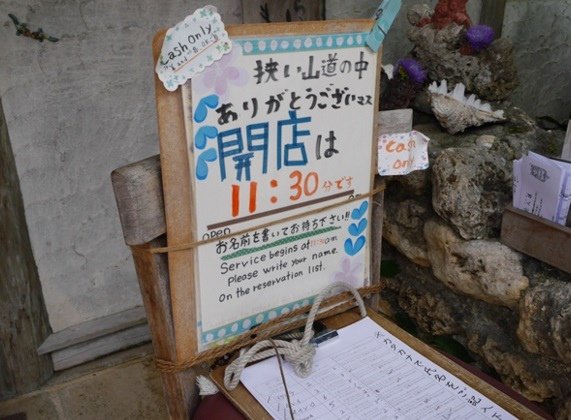 cash only
狭い山道の中
ありがとうございマス
開店は
11:30分です
cash
only
open
お名前を書いてお待ち下さい!!
Service begins at 11:30am
Please write your name.
on the reservation list.